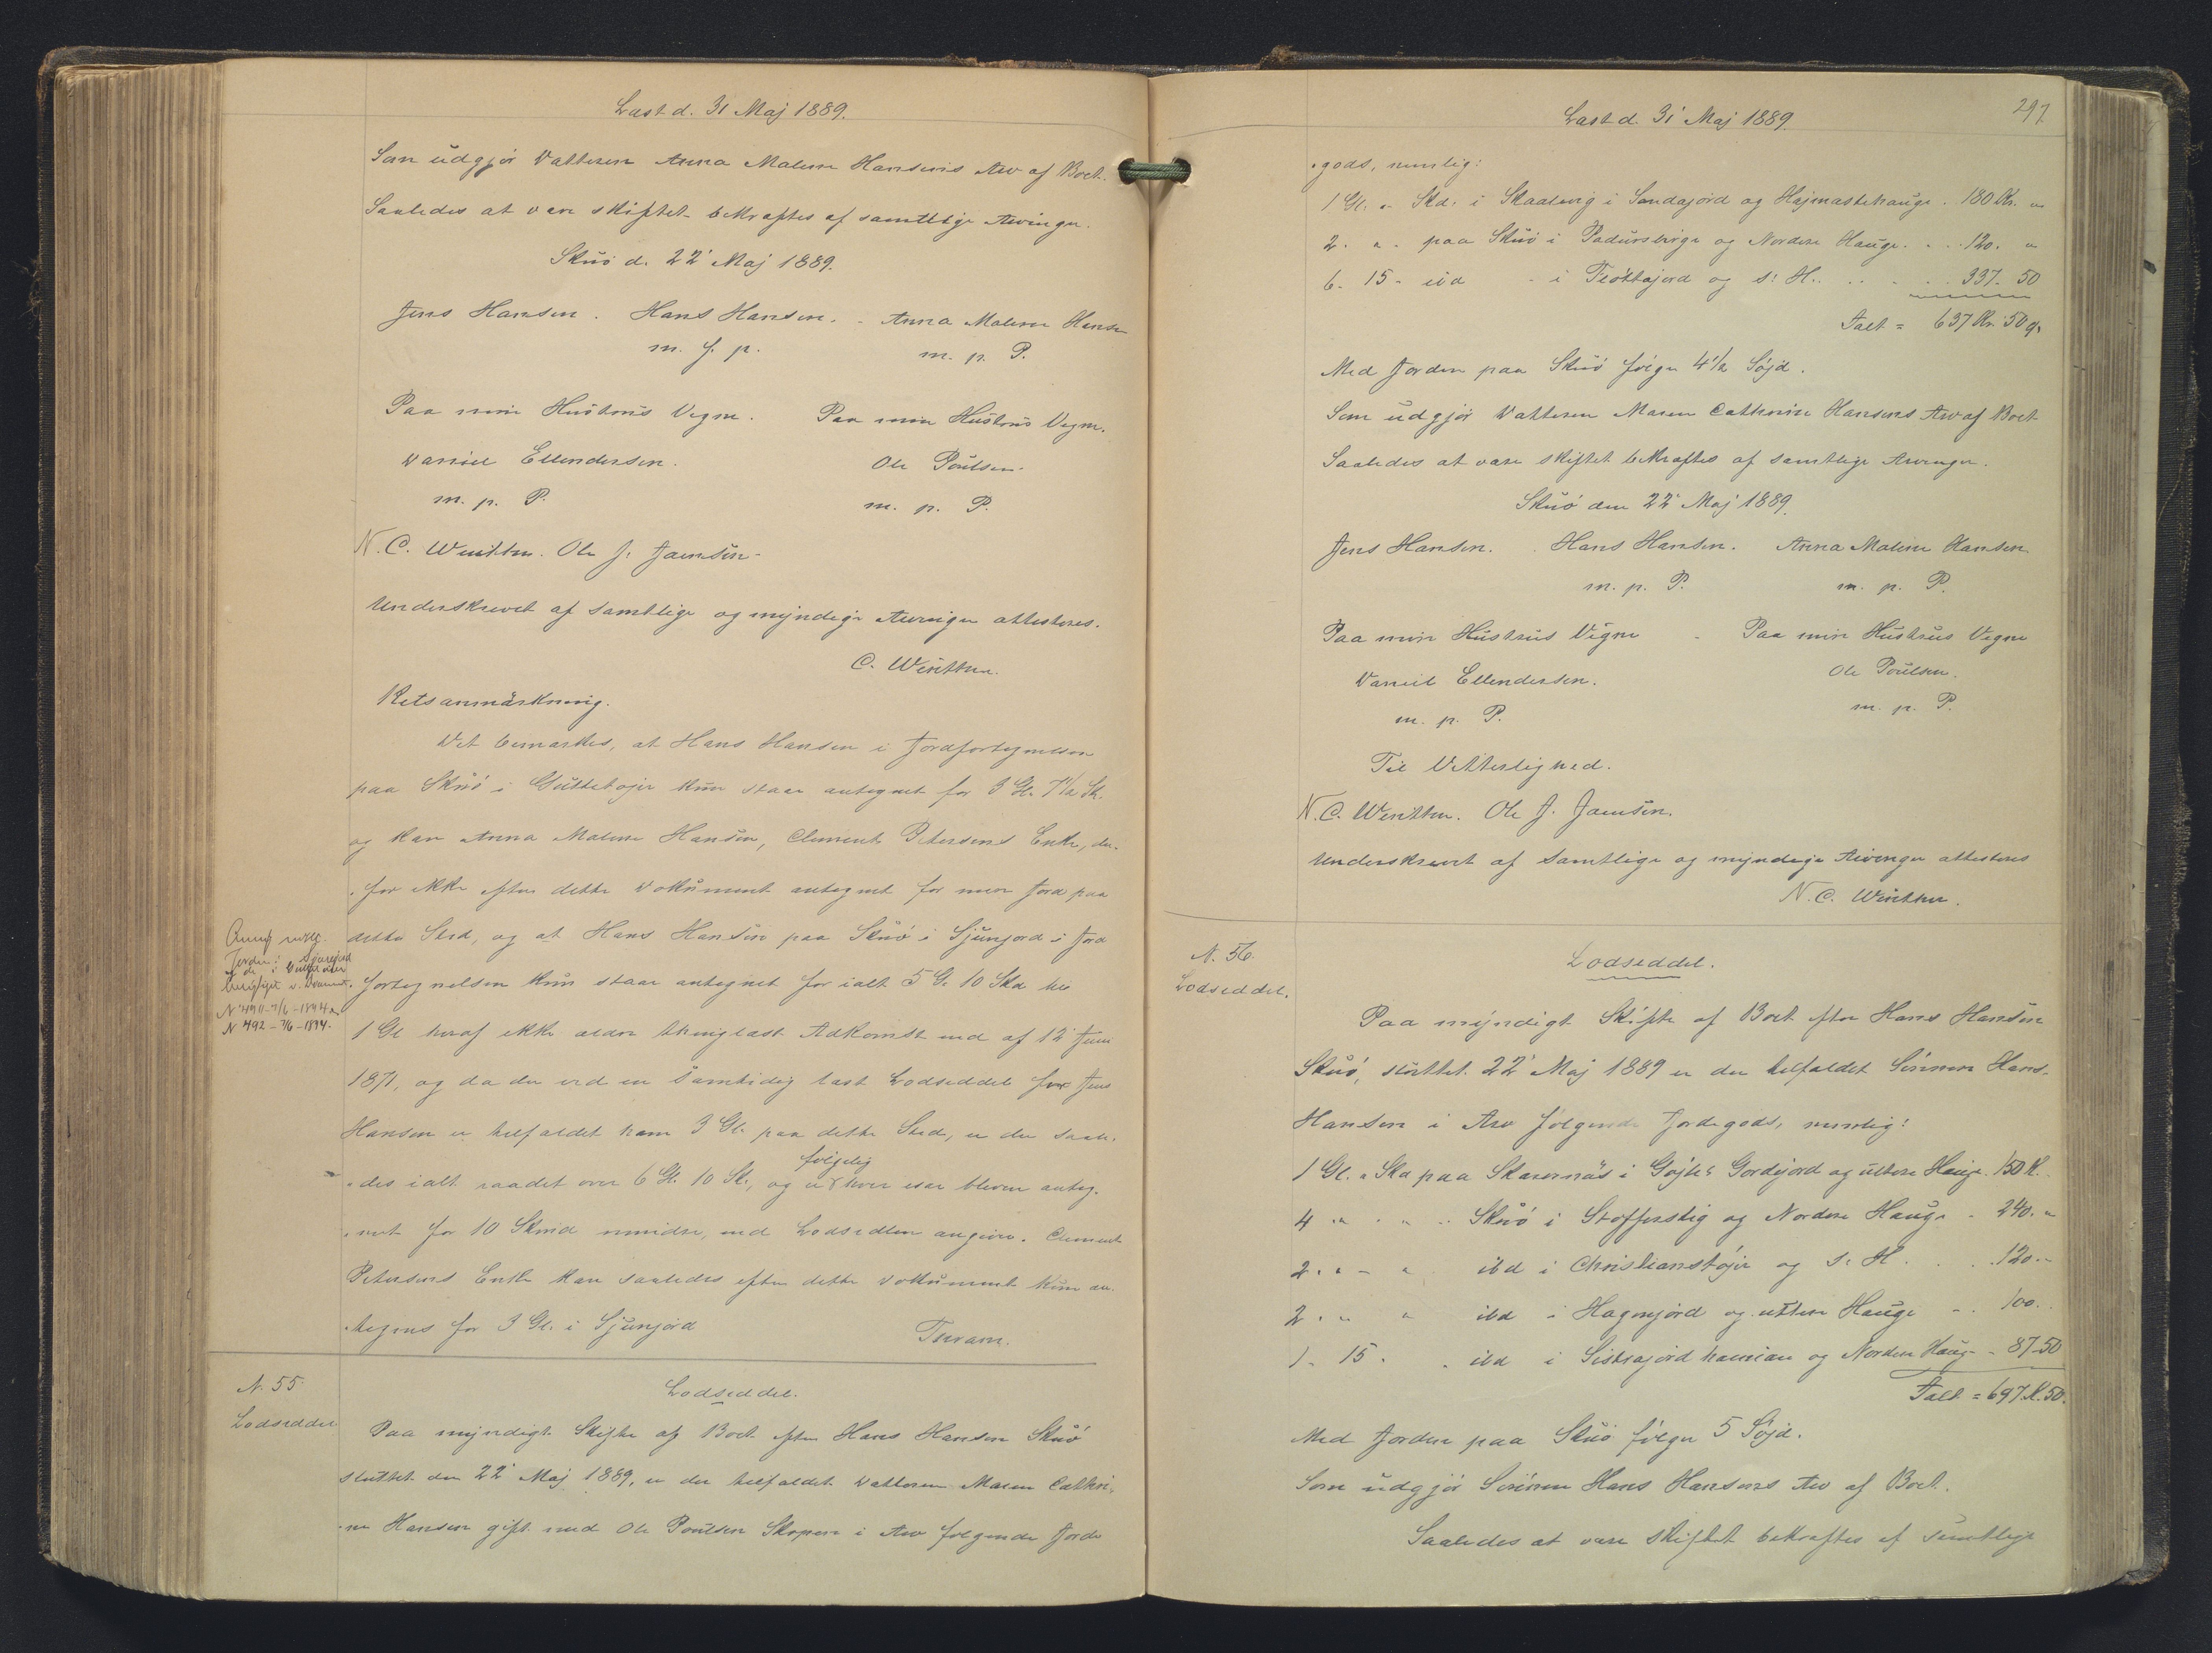 Læst d. 31 Maj 1889.
Som udgjør Datteren Anna Malene Hansens Arv af Boet.
Saaledes at være skiftet bekræftes af samtlige Arvinger.
Skuø d. 22' Maj 1889.
Jens Hansen. Hans Hansen. Anna Malene Hansen
m. f. p. m. p. P.
Paa min Hustrus Vegne. Paa min Hustrus Vegne.
Daniel Ellendersen. Ole Poulsen.
m. p. P. m. p. P.
N. C. Winther. Ole J. Joensen
Underskrevet af samtlige og myndige Arvinger attesteres.
C. Winther.
Retsanmärkning.
Det bemærkes, at Hans Hansen i Jordfortegnelsen
paa Skuø i kun staar antegnet for 3 Gl. 7 1/2 Sk.
og kan Anna Malene Hansen, Clement Petersens Enke, der-
for ikke efter dette Dokument antegnet for mere Jord paa
dette Sted, og at Hans Hansen paa Skuø i Sjunjord i Jord
fortegnelsen kun staar antegnet for ialt 5 Gl. 10 Skd
1 Gl. heraf ikke ældre thinglæst Adkomst end af 12' Juni
1871, og da der ved en samtidig læst Lodseddel for Jens
Hansen er tilfaldet ham 3 Gl. paa dette Sted, er der saale-
des ialt raadet over 6 Gl. 10 Sk., og er følgelig hver især bleven anteg-
net for 10 Skind mindre, end Lodsedlen angiver. Clement
Petersens Enke kan saaledes efter dette Dokument kun an-
tegnes for 3 Gl. i Sjunjord
N 491 - 7/6 - 1894
N 492 - 7/6 - 1894.
N. 55.
Lodseddel
Lodseddel.
Paa myndigt Skifte af Boet efter Hans Hansen Skuø
sluttet den 22' Maj 1889, er der tilfaldet Datteren Maren Cathri-
ne Hansen gift med Ole Poulsen Skopen i Arv følgende Jorde
Læst d. 31' Maj 1889.
297
gods, nemlig:
1 Gl. " Skd. i Skaalevig i Sandajord og Højmastehauge. 180 Kr. "
2. " . paa Skuø i og Nordere Hauge. 120. "
6. 15 " ibd i og s: H. 337. 50
Ialt = 637 Kr. 50 Ø.
Med Jorden paa Skuø følger 4 1/2 Søjd.
Som udgjør Datteren Maren Cathrine Hansens Arv af Boet
Saaledes at være skiftet bekræftes af samtlige Arvinger.
Skuø den 22' Maj 1889.
Jens Hansen. Hans Hansen. Anna Malene Hansen
m. p. P. m. p. P.
Paa min Hustrus Vegne Paa min Hustrus Vegne
Daniel Ellendersen. Ole Poulsen.
m. p. P. m. p. P.
Til Vitterlighed.
N. C. Winther. Ole J. Joensen.
Underskrevet af samtlige og myndige Arvinger attesteres
N. C. Winther.
N. 56.
Lodseddel.
Lodseddel.
Paa myndigt Skifte af Boet efter Hans Hansen
Skuø, sluttet 22' Maj 1889 er der tilfaldet Sønnen Hans
Hansen i Arv følgende Jordegods, nemlig:
1 Gl. " Skd paa Skarernäs i Gordijord og uttere Hauge. 150 K.
4 " " Skuø i Stofferstig og Nordere Hauge 240. "
2. " " ibd i Christianstøjer og s. H. 120. "
2. " " ibd i Hagenjord og uttere Hauge 100.
1. 15. " ibd i Sistrajord og Nordere Hauge 87. 50
Ialt = 697 K. 50.
Med Jorden paa Skuø følger 5 Søjd.
Som udgjør Sønnen Hans Hansens Arv af Boet.
Saaledes at være skiftet bekræftes af samtlige